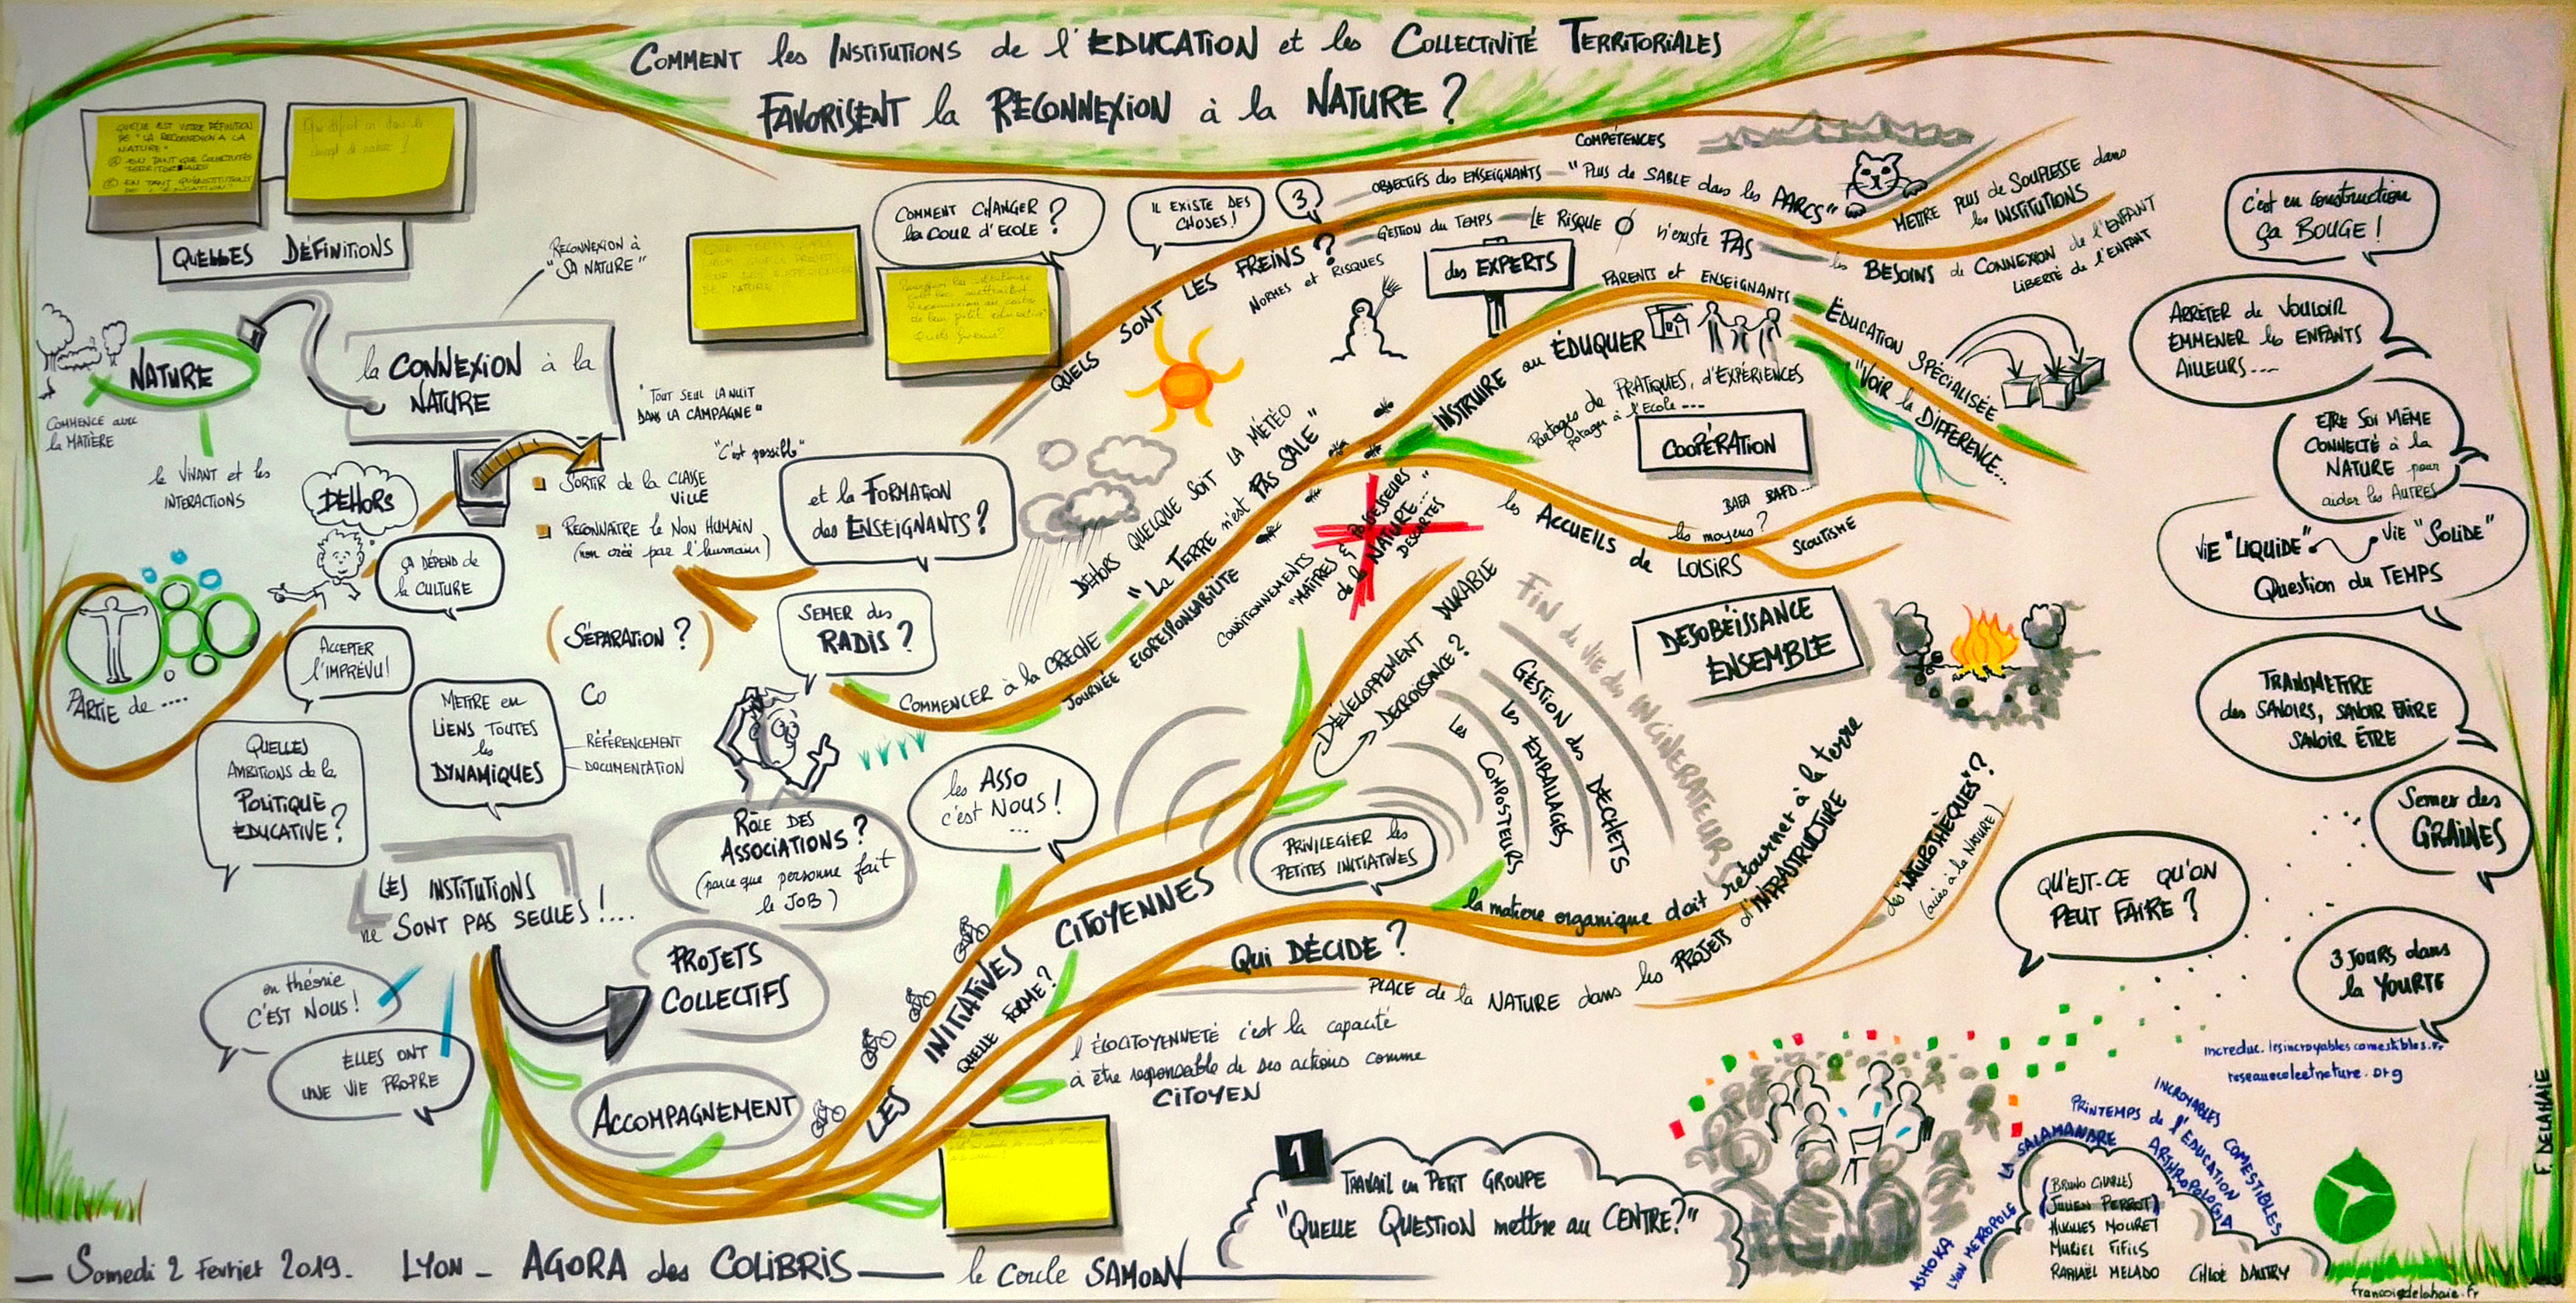 COMMENT les INSTITUTIONS de l'EDUCATION et les COLLECTIVITÉ TERRITORIALES
FAVORISENT la RECONNEXION à la NATURE ?
QUELLE EST VOTRE DÉFINITION
DE "LA RECONNEXION A LA
NATURE"
① EN TANT QUE COLLECTIVITÉS
TERRITORIALES
② EN TANT QU'INSTITUTIONS
DE L'ÉDUCATION"
concept de nature ?
QUELLES DÉFINITIONS
RECONNEXION à
"SA NATURE"
NATURE
COMMENCE avec
la MATIÈRE
le VIVANT et les
INTERACTIONS
la CONNEXION à la
NATURE
"TOUT SEUL LA NUIT
DANS LA CAMPAGNE"
"C'est possible"
SORTIR de la CLASSE
VILLE
RECONNAÎTRE le NON HUMAIN
(non créé par l'humain)
DEHORS
ÇA DÉPEND de
la CULTURE
PARTIE de ....
ACCEPTER
l'IMPRÉVU!
(SÉPARATION ?)
METTRE en
LIENS TOUTES
les
DYNAMIQUES
Co
RÉFÉRENCEMENT
DOCUMENTATION
QUELLES
AMBITIONS de la
POLITIQUE
EDUCATIVE ?
LES INSTITUTIONS
ne SONT PAS SEULES !....
en théorie
C'EST NOUS !
ELLES ONT
UNE VIE PROPRE
PROJETS
COLLECTIFS
ACCOMPAGNEMENT
RÔLE DES
ASSOCIATIONS ?
(parce que personne fait
le JOB)
les ASSO
c'est NOUS !
...
COMMENT CHANGER
la COUR d'ECOLE ?
IL EXISTE DES
CHOSES !
3
et la FORMATION
des ENSEIGNANTS ?
SEMER des
RADIS ?
QUELS SONT LES FREINS ?
NORMES et RISQUES
COMPÉTENCES
OBJECTIFS des ENSEIGNANTS — "PLUS de SABLE dans les PARCS"
GESTION du TEMPS — LE RISQUE Ø n'existe PAS
METTRE PLUS de SOUPLESSE dans
les INSTITUTIONS
les BESOINS de CONNEXION de l'ENFANT
LIBERTÉ de l'ENFANT
des EXPERTS
PARENTS et ENSEIGNANTS
INSTRUIRE ou ÉDUQUER
ÉDUCATION SPÉCIALISÉE
"VOIR la DIFFÉRENCE...
Partages de PRATIQUES, d'EXPÉRIENCES
potager à l'Ecole ...
COOPÉRATION
DEHORS QUELQUE SOIT LA MÉTÉO
"LA TERRE n'est PAS SALE"
COMMENCER à la CRECHE
JOURNÉE ECORESPONSABILITE
CONDITIONNEMENTS
"MAÎTRES & POSSESSEURS
de la NATURE..."
DESCARTES
les ACCUEILS de LOISIRS
BAFA BAFD...
les moyens ?
SCOUTISME
DESOBÉISSANCE
ENSEMBLE
DÉVELOPPEMENT DURABLE
DECROISSANCE ?
LES COMPOSTEURS
les EMBALLAGES
GESTION des DÉCHETS
FIN de VIE des INCINERATEURS
PRIVILEGIER les
PETITES INITIATIVES
LES INITIATIVES CITOYENNES
QUELLE FORME ?
Qui DÉCIDE ?
la matière organique doit retourner à la terre
PLACE de la NATURE dans les PROJETS d'INFRASTRUCTURE
des "NATUROTHÈQUES" ?
(accès à la NATURE)
l'ECOCITOYENNETÉ c'est la capacité
à être responsable de ses actions comme
CITOYEN
c'est en construction
ça BOUGE !
ARRÊTER de VOULOIR
EMMENER les ENFANTS
AILLEURS....
ETRE SOI MÊME
CONNECTÉ à la
NATURE pour
aider les AUTRES
VIE "LIQUIDE" VIE "SOLIDE"
Question du TEMPS
TRANSMETTRE
des SAVOIRS, SAVOIR FAIRE
SAVOIR ÊTRE
Semer des
GRAINES
QU'EST-CE QU'ON
PEUT FAIRE ?
3 JOURS dans
la YOURTE
increduc.lesincroyablescomestibles.fr
reseauecoleetnature.org
1
TRAVAIL en PETIT GROUPE
"QUELLE QUESTION mettre au CENTRE?"
ASHOKA
LYON METROPOLE
LA SALAMANDRE
PRINTEMPS de l'EDUCATION
INCROYABLES COMESTIBLES
ARTHROPOLOGIA
BRUNO CHARLES
JULIEN PERROT
HUGUES MOURET
MURIEL FIFILS
RAPHAËL MELADO
CHLOÉ DAUTRY
F. DELAHAIE
francoisdelahaie.fr
— Samedi 2 Fevrier 2019. LYON - AGORA des COLIBRIS —